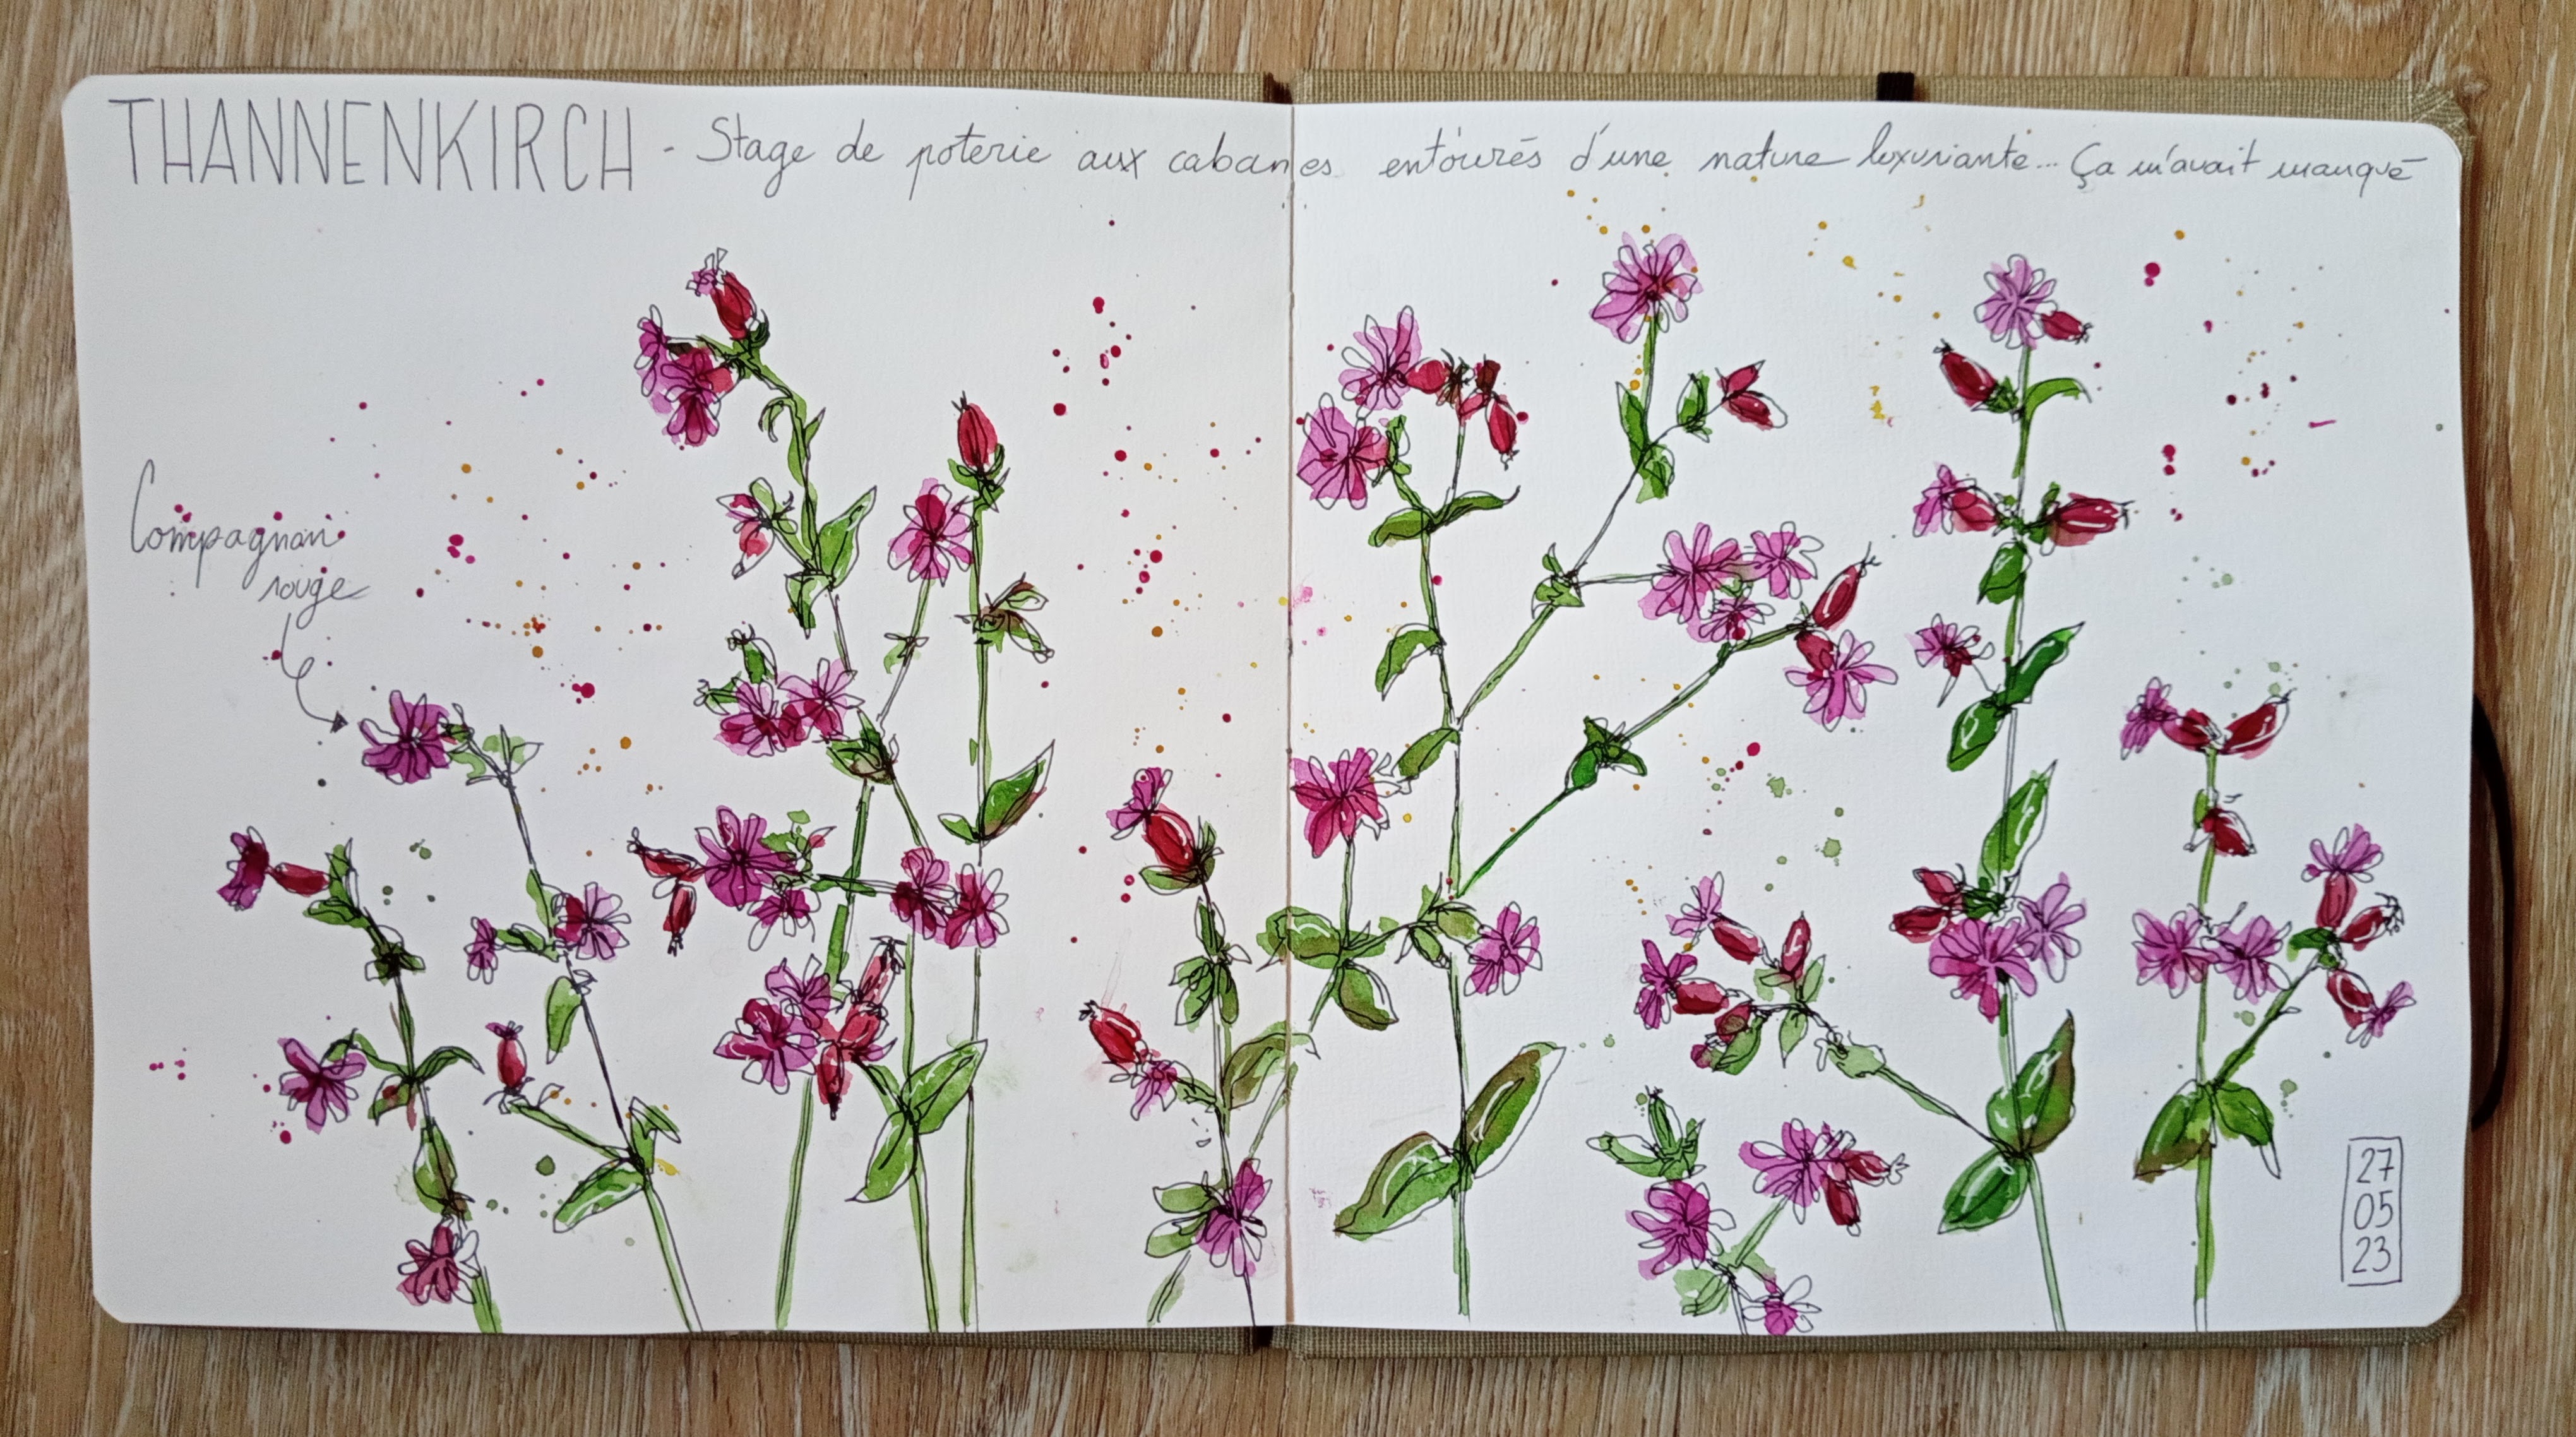 THANNENKIRCH - Stage de poterie aux cabanes entourés d'une nature luxuriante... Ça m'avait manqué
Compagnon
rouge
27
05
23